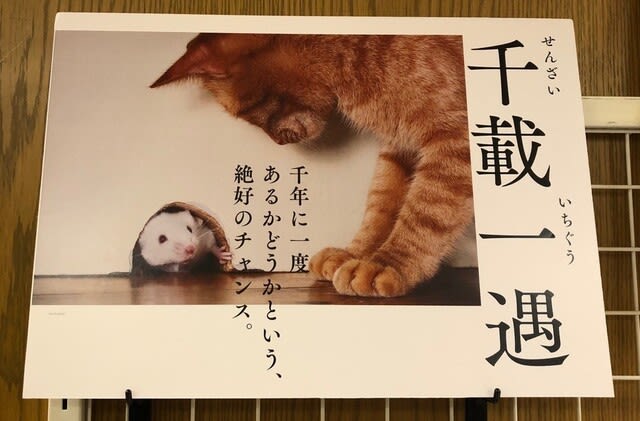 千載一遇
せんざい
いちぐう
千年に一度
あるかどうかという、
絶好のチャンス。